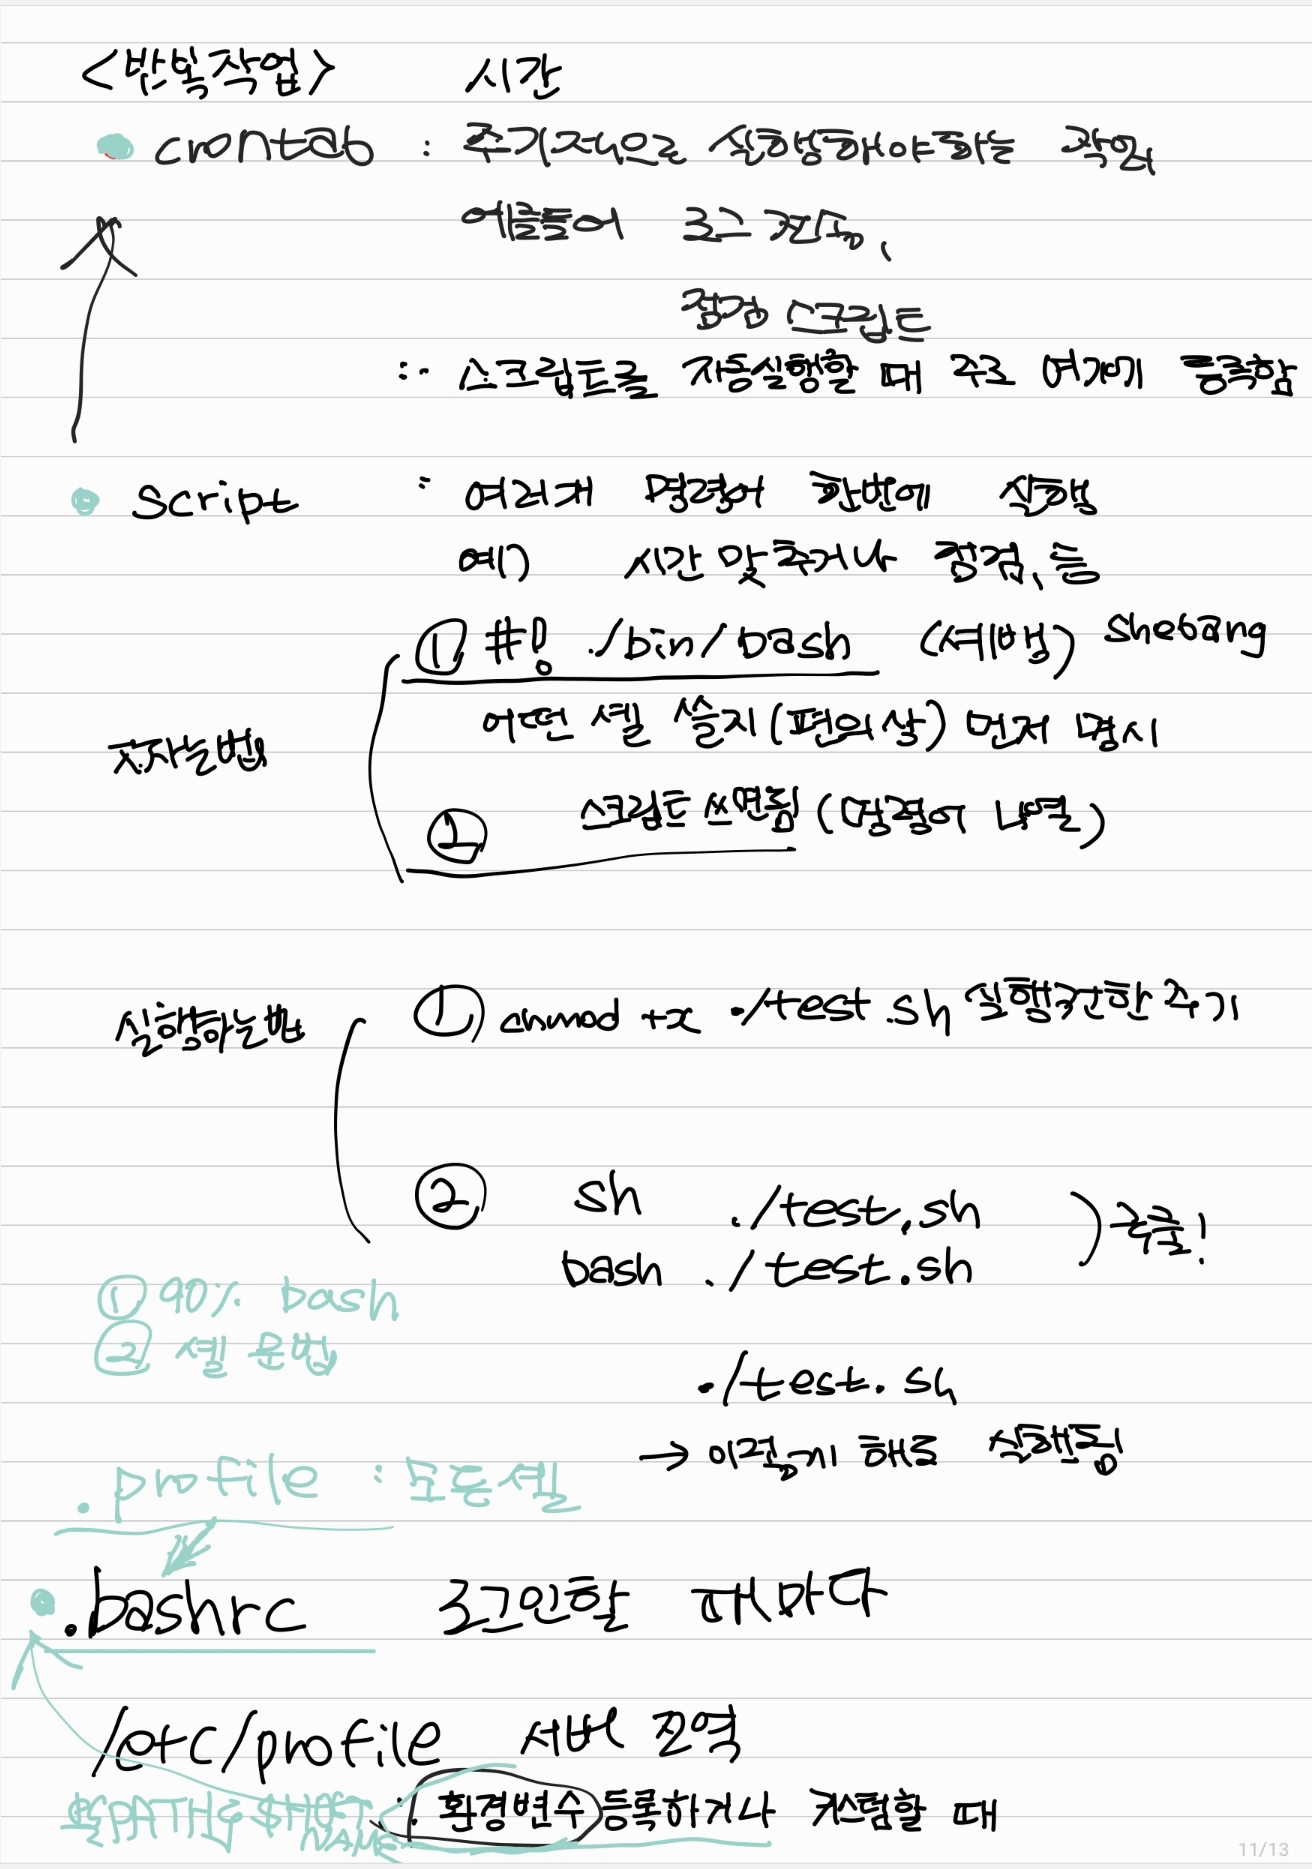 <반복작업> 시간
crontab : 주기적으로 실행해야하는 작업
예를들어 로그 전송,
점검 스크립트
:- 스크립트를 자동실행할 때 주로 여기에 등록함
script : 여러개 명령어 한번에 실행
예) 시간 맞추거나 점검, 등
① #! ./bin/bash (셰뱅) shebang
어떤 셸 쓸지(편의상) 먼저 명시
짜는법
② 스크립트 쓰면됨 (명령어 나열)
실행하는법 ① chmod +x ./test.sh 실행권한 주기
② sh ./test.sh
bash ./test.sh ) 국룰!
① 90% bash
② 셸 문법
./test.sh
→ 이렇게 해도 실행됨
.profile : 모든셸
.bashrc 로그인할 때마다
/etc/profile 서버 전역
$PATH $HOST NAME : 환경변수 등록하거나 커스텀할 때
11/13